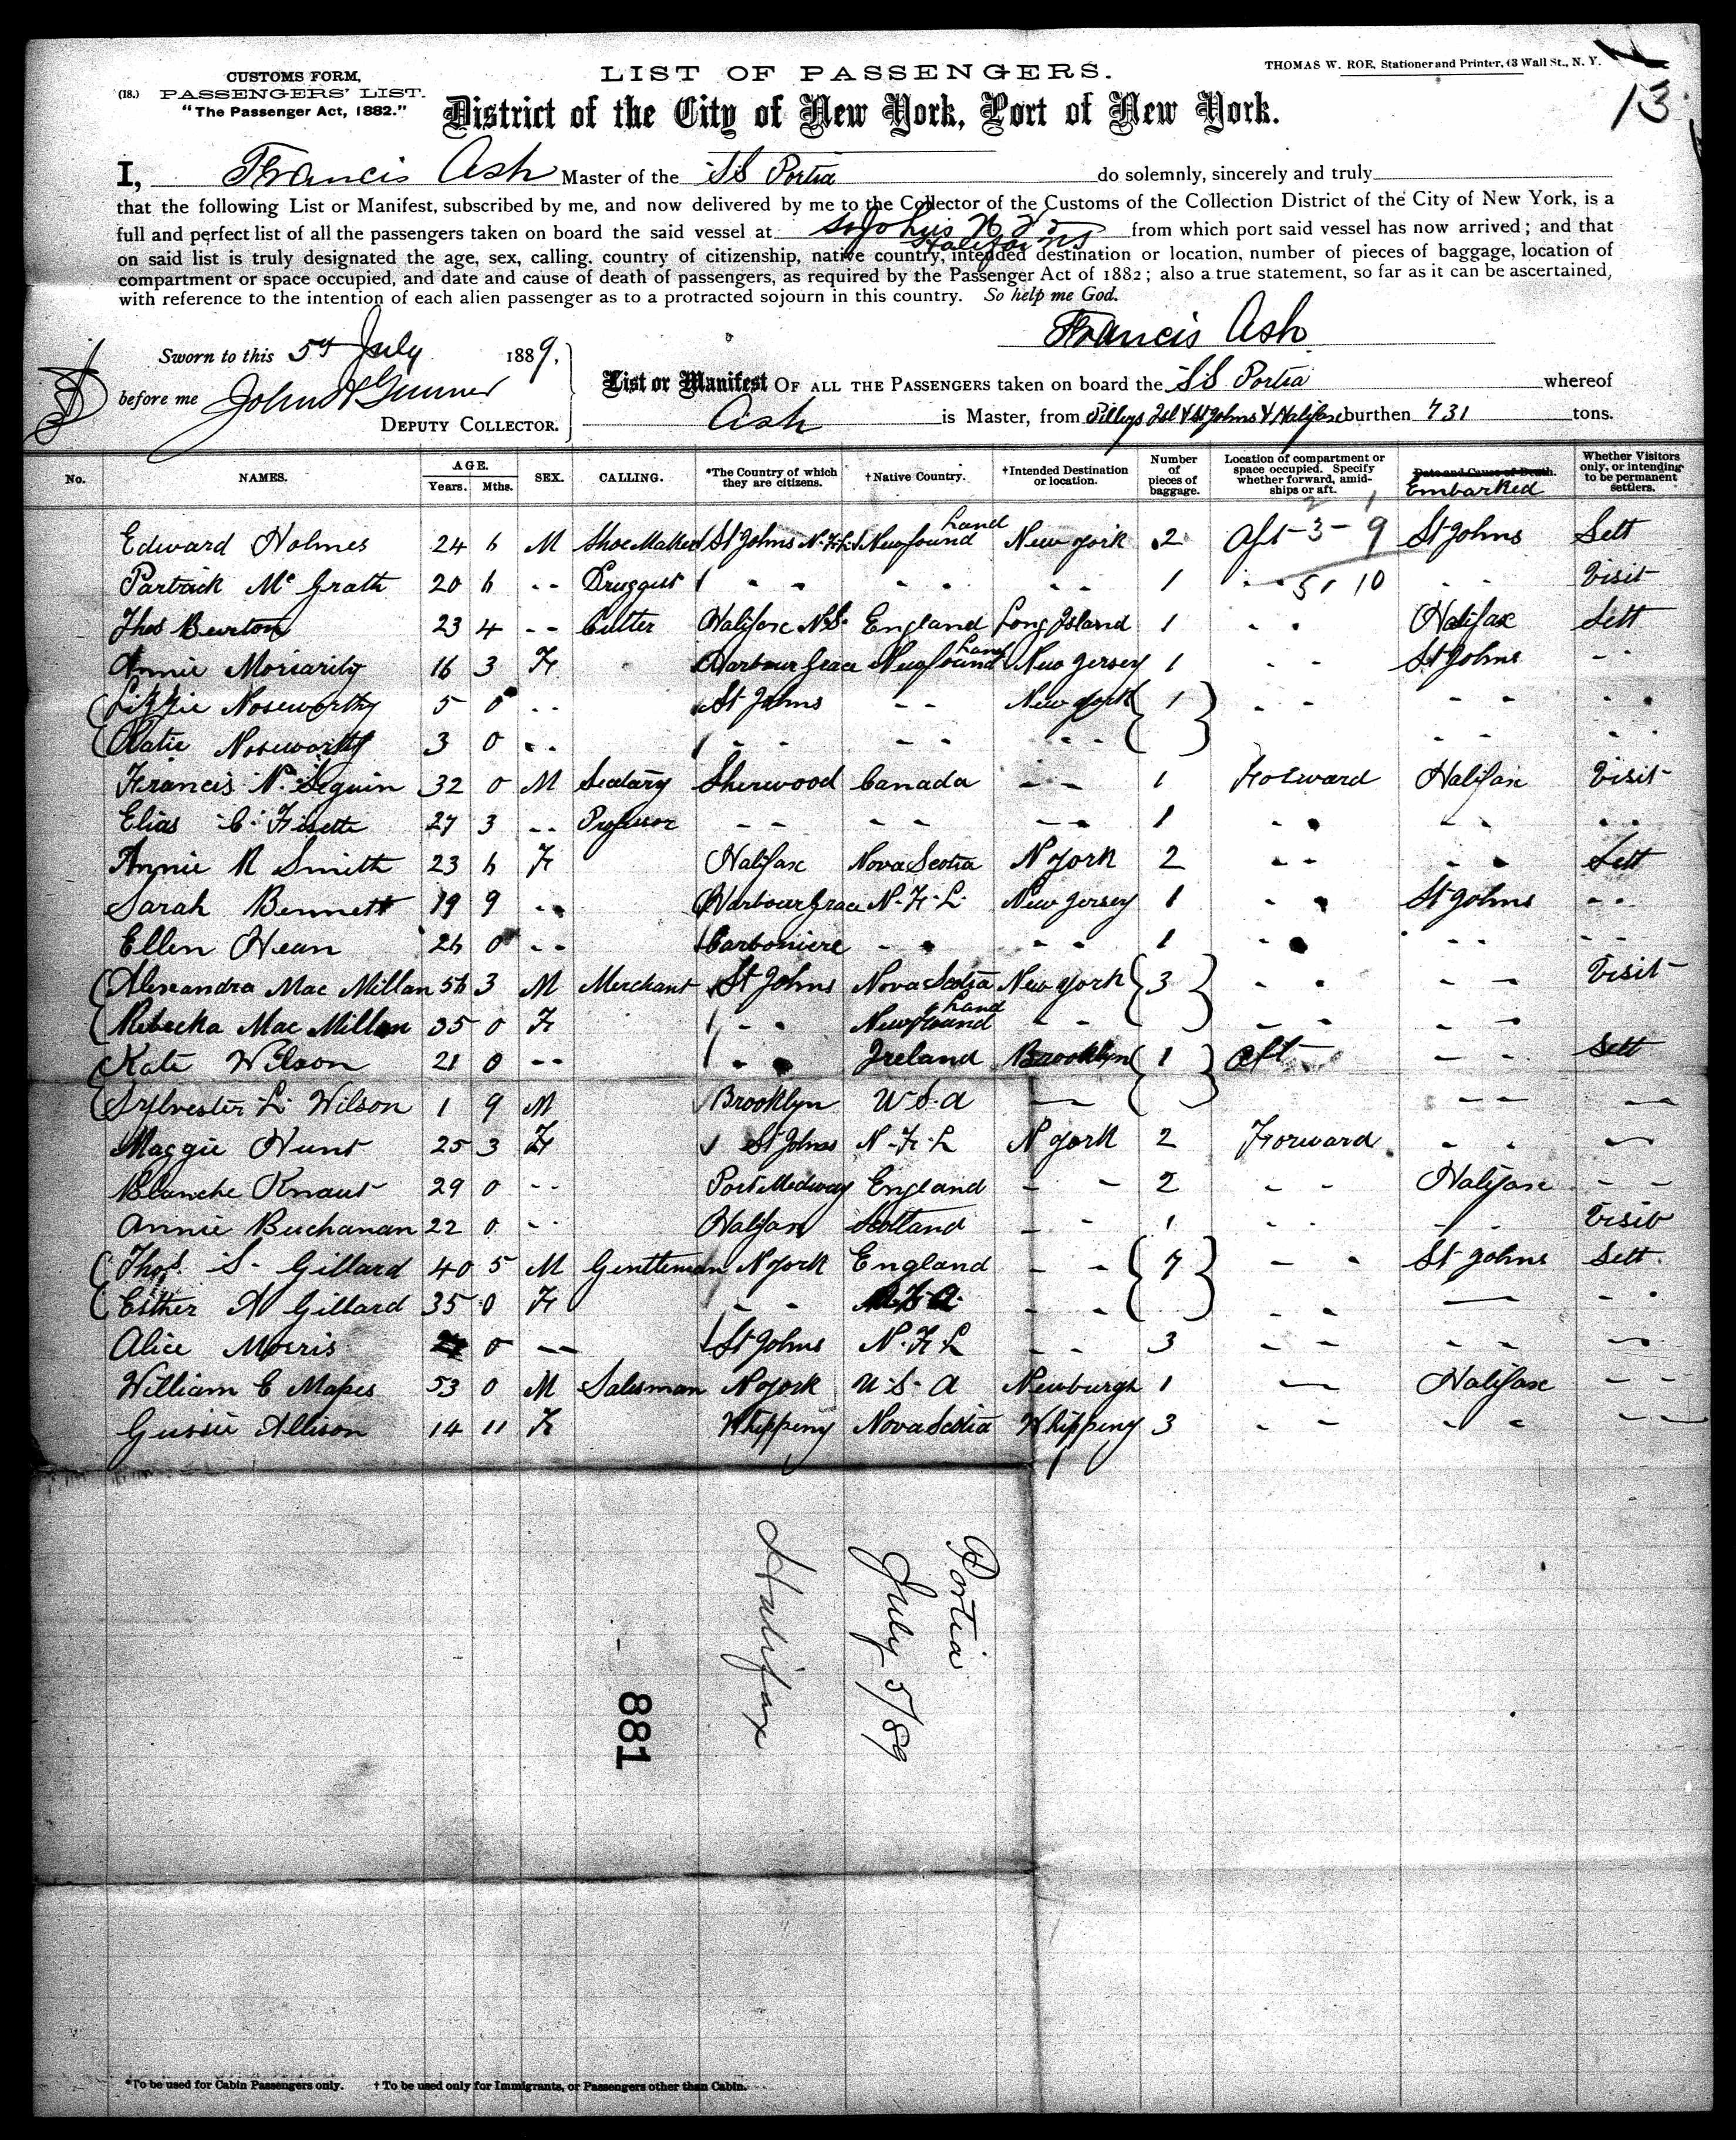 CUSTOMS FORM,
(18.) PASSENGERS' LIST.
"The Passenger Act, 1882."
LIST OF PASSENGERS.
THOMAS W. ROE, Stationer and Printer, 43 Wall St., N. Y.
13
District of the City of New York, Port of New York.
I, Francis Ash Master of the SS Portia do solemnly, sincerely and truly
that the following List or Manifest, subscribed by me, and now delivered by me to the Collector of the Customs of the Collection District of the City of New York, is a
full and perfect list of all the passengers taken on board the said vessel at St Johns N F from which port said vessel has now arrived; and that
Halifax NS
on said list is truly designated the age, sex, calling. country of citizenship, native country, intended destination or location, number of pieces of baggage, location of
compartment or space occupied, and date and cause of death of passengers, as required by the Passenger Act of 1882; also a true statement, so far as it can be ascertained,
with reference to the intention of each alien passenger as to a protracted sojourn in this country. So help me God.
Francis Ash
Sworn to this 5th July 1889,
before me John A Gunner
DEPUTY COLLECTOR.
List or Manifest OF ALL THE PASSENGERS taken on board the SS Portia whereof
Ash is Master, from Pilleys Isl & St Johns & Halifax burthen 731 tons.
No. NAMES. AGE. Years. Mths. SEX. CALLING. *The Country of which they are citizens. †Native Country. †Intended Destination or location. Number of pieces of baggage. Location of compartment or space occupied. Specify whether forward, amidships or aft. Date and Cause of Death. Embarked Whether Visitors only, or intending to be permanent settlers.
Edward Holmes 24 6 M Shoe Maker St Johns N.F.L. Newfoundland New York 2 Aft - 3 - 9 St Johns Sett
Partrick Mc Grath 20 6 - - Druggist - - - - - - 1 - - 5 1 10 - - Visit
Thos Burton 23 4 - - Cutter Halifax N.S. England Long Island 1 - - Halifax Sett
Annie Moriarity 16 3 F Harbour Grace Newfoundland New Jersey 1 - - St Johns - -
Lizzie Noseworthy 5 0 - - St Johns - - New York 1 - - - - - -
Katie Noseworthy 3 0 - - - - - - - - - - - -
Francis N. Seguin 32 0 M Sedary Sherwood Canada - - 1 Forward Halifax Visit
Elias C. Fisette 27 3 - - Professor - - - - - - 1 - - - - - -
Annie R Smith 23 6 F Halifax Nova Scotia N York 2 - - - - Sett
Sarah Bennett 19 9 - - Harbour Grace N.F.L. New Jersey 1 - - St Johns - -
Ellen Hean 26 0 - - Carboniere - - - - 1 - - - - - -
Alexandra Mac Millan 56 3 M Merchant St Johns Nova Scotia New York 3 - - - - Visit
Rebecka Mac Millan 35 0 F - - Newfoundland - - - - - -
Kate Wilson 21 0 - - - - Ireland Brooklyn 1 Aft - - Sett
Sylvester L. Wilson 1 9 M Brooklyn U.S.A — - - —
Maggie Hunt 25 3 F St Johns N.F.L N York 2 Forward - - —
Blanche Knaut 29 0 - - Port Medway England - - 2 - - Halifax - -
Annie Buchanan 22 0 - - Halifax Scotland - - 1 - - - - Visit
Thos. S. Gillard 40 5 M Gentleman N York England - - 7 - - St Johns Sett
Esther A Gillard 35 0 F - - - - - - — - -
Alice Morris 0 — St Johns N.F.L - - 3 - - - - —
William C Mapes 53 0 M Salesman N York U.S.A Newburgh 1 — Halifax - -
Gussie Allison 14 11 F Whippeny Nova Scotia Whippeny 3 - - - - - -
Portia
July 5/89
Halifax
881
*To be used for Cabin Passengers only. †To be used only for Immigrants, or Passengers other than Cabin.